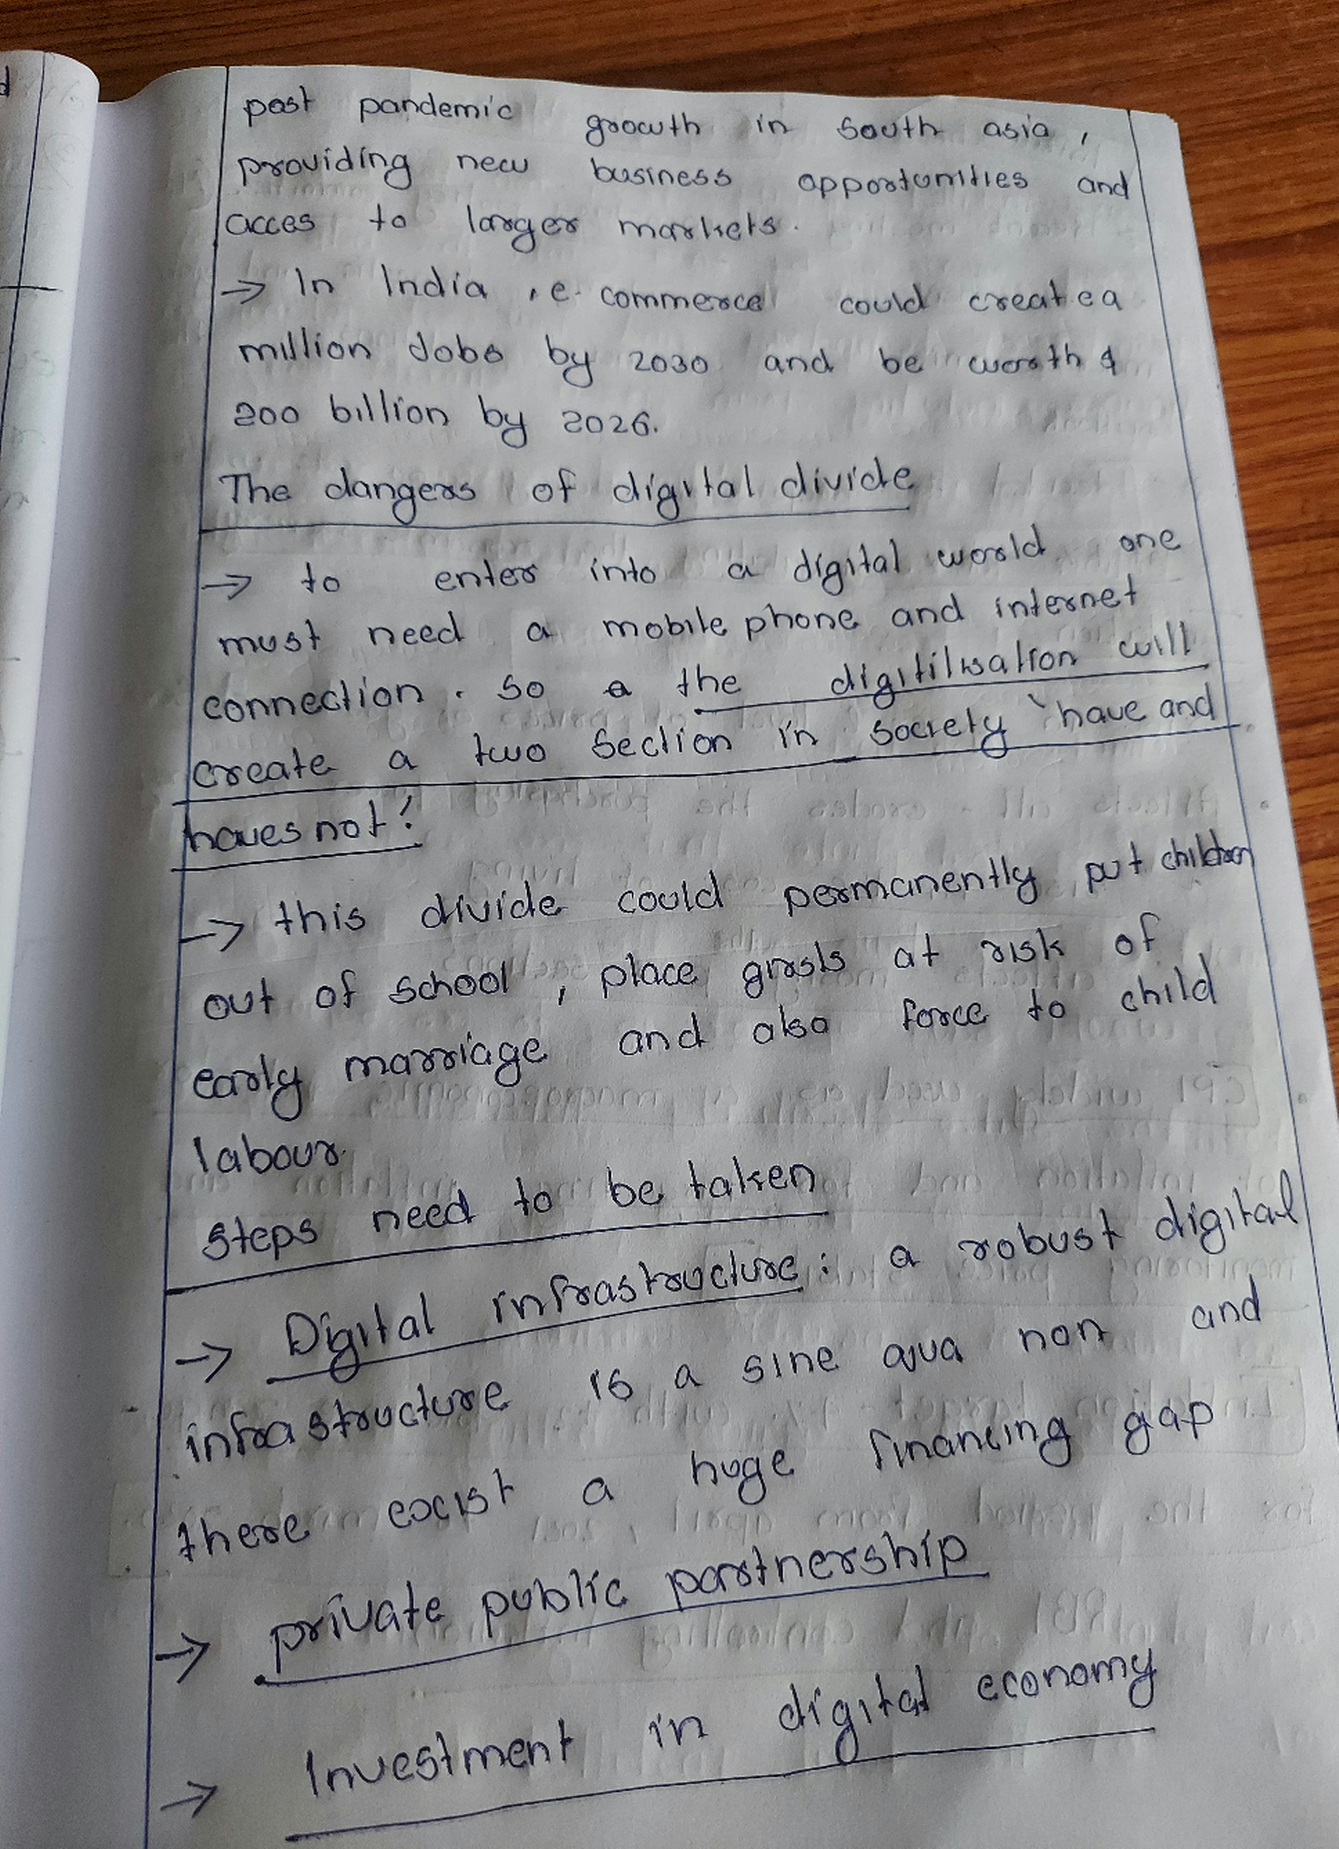 post pandemic growth in South asia,
providing new business opportunities and
acces to larger markets.
→ In India, e-commerce could create a
million Jobs by 2030 and be worth $
200 billion by 2026.
The dangers of digital divide
→ to enter into a digital world one
must need a mobile phone and internet
connection. So a the digitilisation will
create a two Section in society 'have and
haves not'.
→ this divide could permanently put children
out of school, place girls at risk of
early marriage and also force to child
labour.
Steps need to be taken
→ Digital infrastructure: a robust digital
infrastructure is a sine qua non and
there exist a huge financing gap
→ private public partnership
→ Investment in digital economy